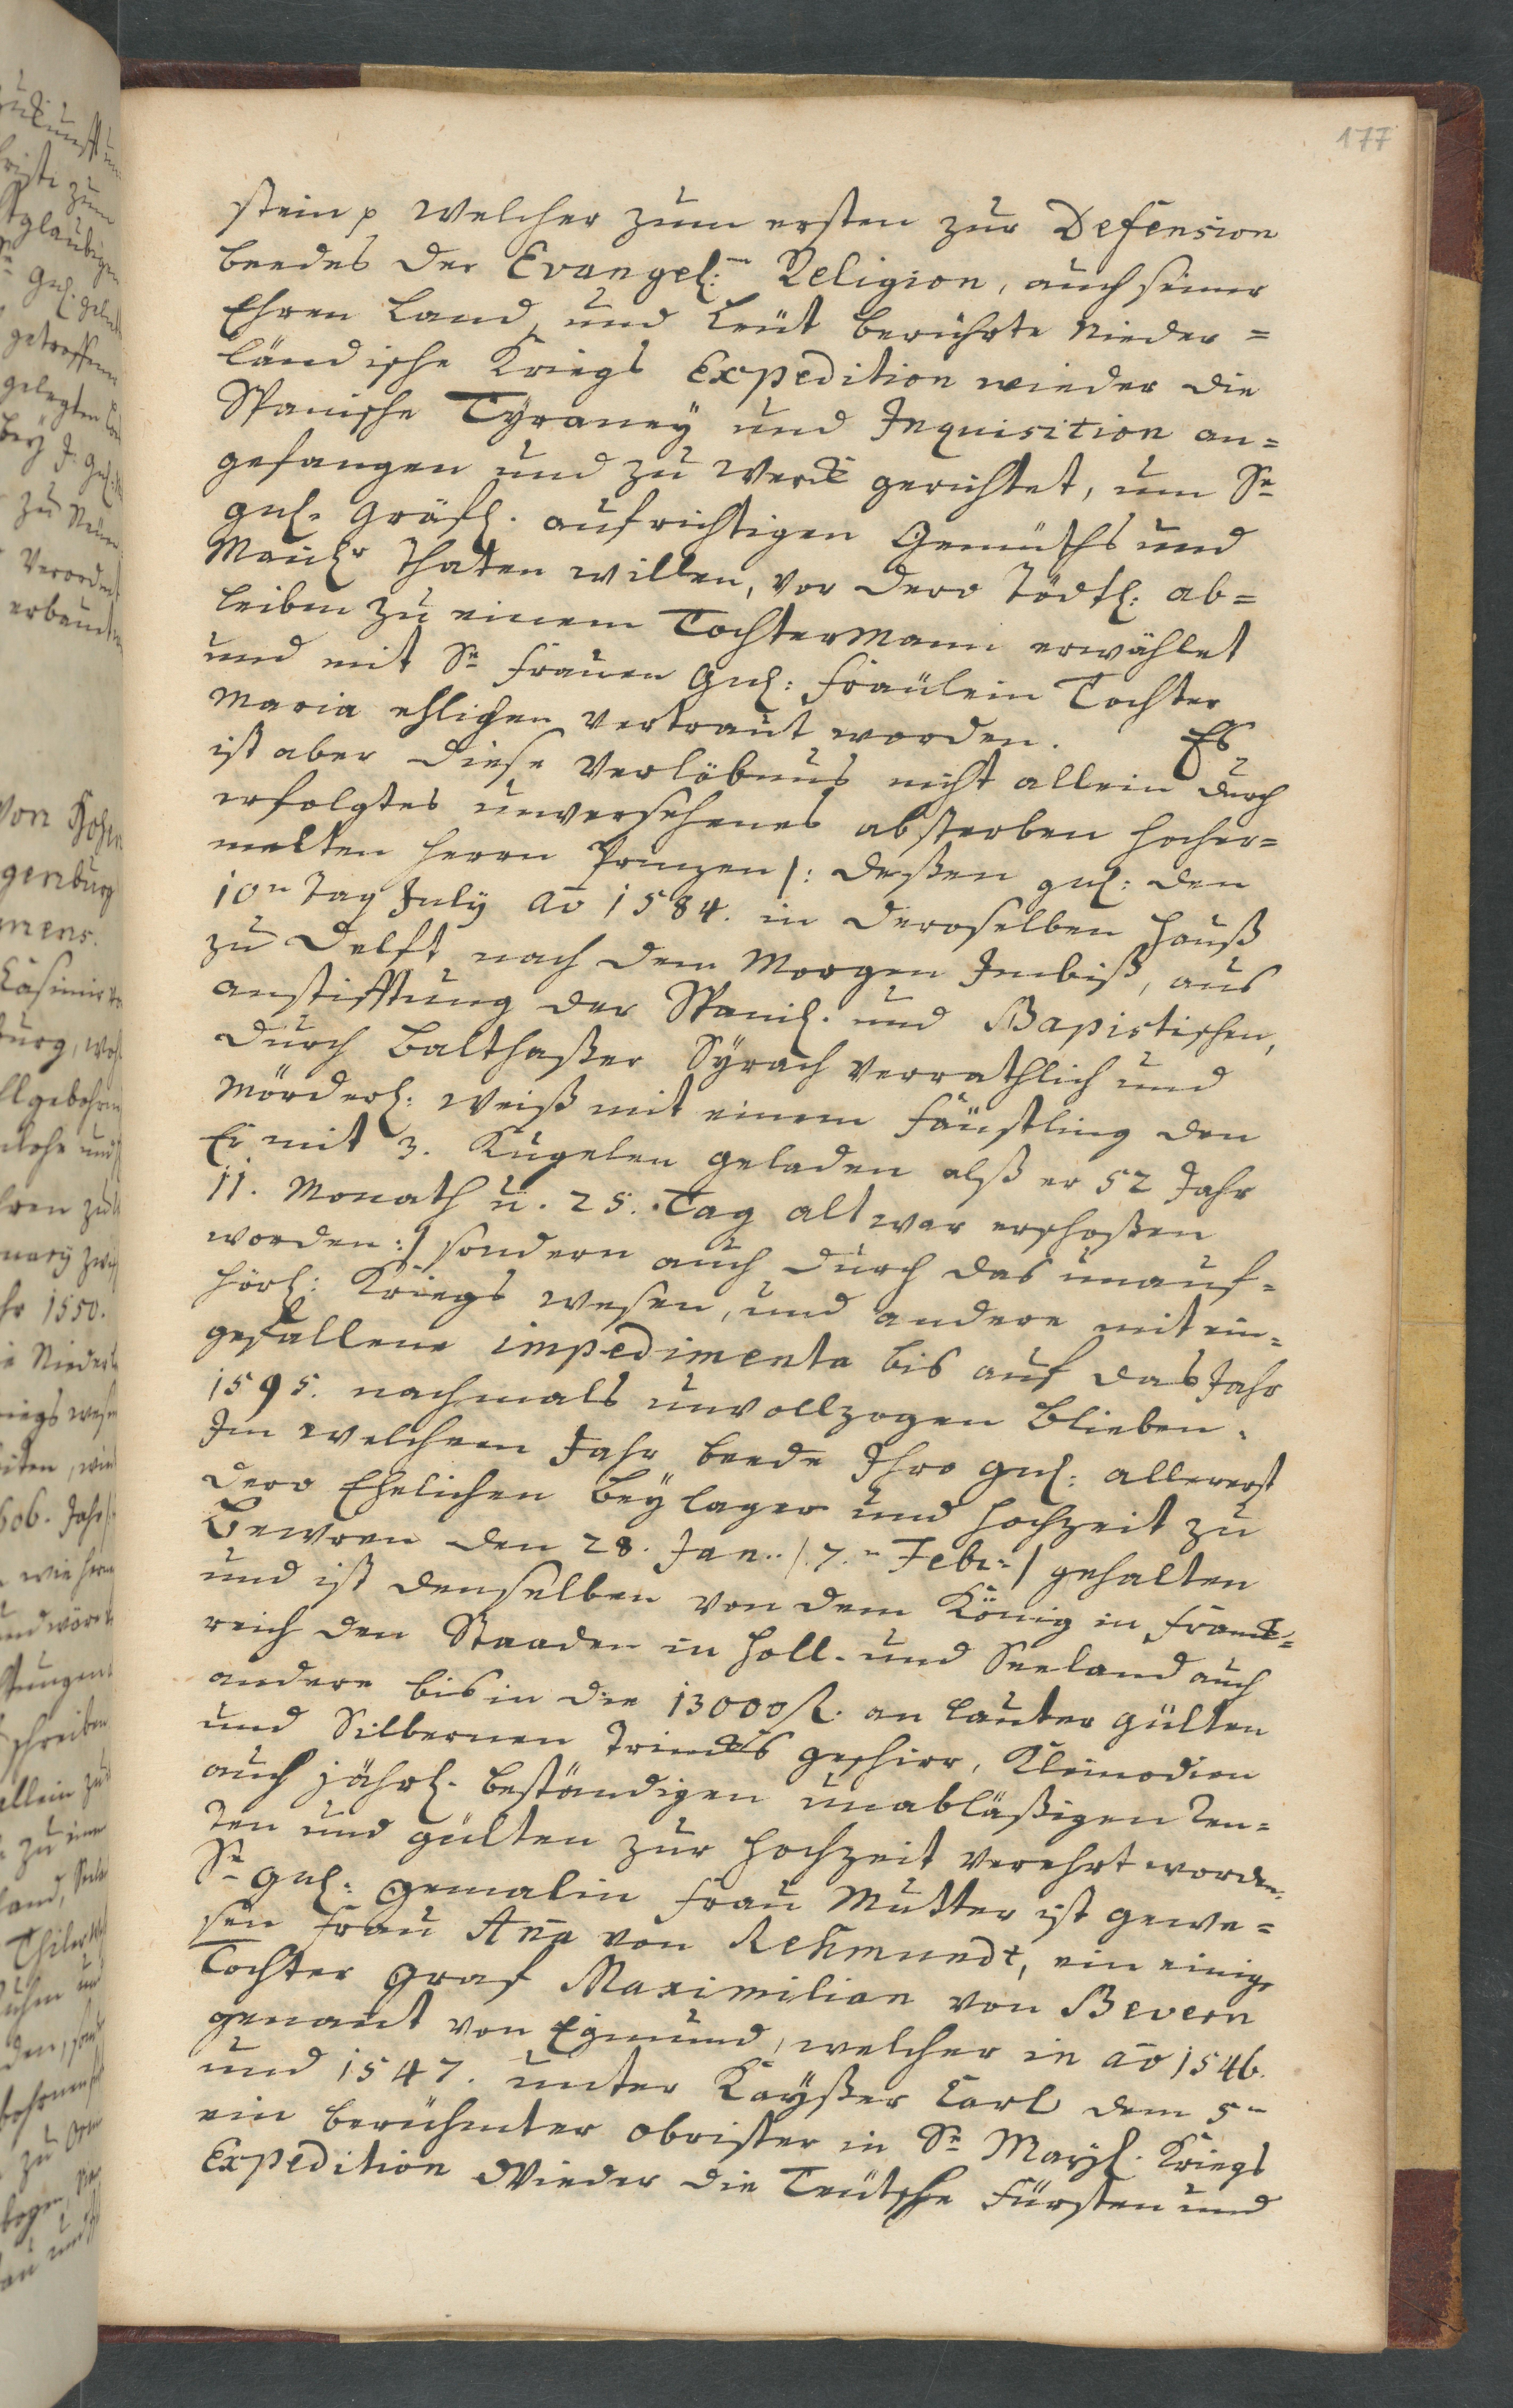 177
stein p welcher zum ersten zur Defension
beedes der Evangel: Religion, auch seiner
Ehren Land, und Leüt berührte Nieder=
ländische Kriegs Expedition wieder die
Spanische Tÿraneÿ und Inquisition an=
gefangen und zu Werck gerichtet, um Sr
gnl. Gräfl. aufrichtigen Gemüths und
Mañlr Thaten willen, vor dero Tödtl: ab=
leiben zu einem TochterMann erwählet
und mit Sr Frauen Gnl: Fräulein Tochter
Maria ehlichen vertraut worden. Es
ist aber diese Verlöbnus nicht allein durch
erfolgtes unversehenes absterben hocher=
melten Herrn Prinzen /: deßen gnl: den
10n Tag Julÿ aō 1584. in deroselben Hauß
zu Delft nach dem Morgen Imbiß, aus
anstifftung der Spanl. und Bapistischen,
durch Balthaßer Sÿrach verrathlich und
Mörderl: weiß mit einem Fäustling den
Er mit 3. Kugelen geladen alß er 52 Jahr
11. Monath u. 25. Tag alt war erschoßen
worden :/ sondern auch durch das unauf=
hörl: Kriegs wesen, und andere mit ein=
gefallene impedimenta bis auf das Jahr
1595. nachmals unvollzogen blieben.
In welchem Jahr beede Ihro gnl: allererst
dero Ehelichen Beÿlager und Hochzeit zu
Bewren den 28. Jan. / 7.n Febr: / gehalten
und ist denselben von dem König in Franck=
reich den Staaden in Holl. und Seeland auch
andere bis in die 13000 fl. an lauter gülten
und Silbernen Trincks geschirr, Kleinodien
auch jährl. beständigen unabläßigen Ren=
ten und gülten zur Hochzeit verehrt worden.
Sr Gnl: Gemalin Frau Mutter ist gewe=
sen Frau Aña von Rehmundt, ein einige
Tochter Graf Maximilian von Bevern
genañt von Egmund, welcher in aō 1546.
und 1547. unter Kaÿßer Carl dem 5n
ein berühmter Obrister in Sr Maÿl. Kriegs
Expedition Wieder die Teütsche Fürsten und